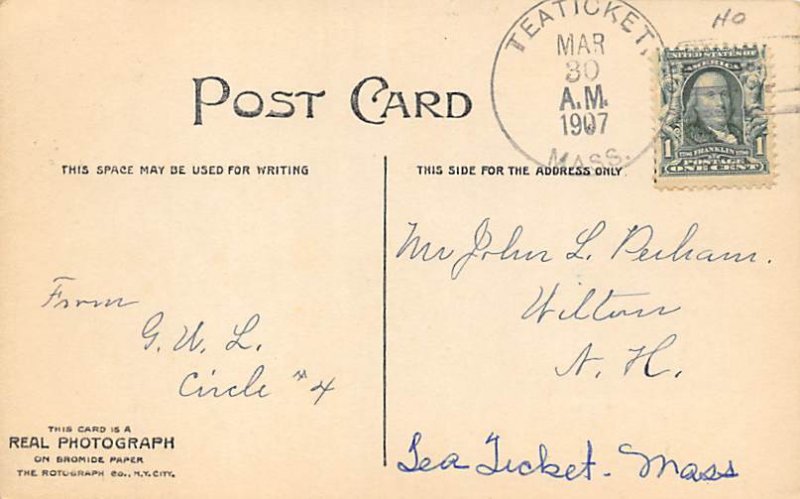 HO
TEATICKET,
MAR
30
A.M.
1907
MASS.
UNITED STATES OF
AMERICA
1 1
FRANKLIN
POSTAGE
ONE CENT
POST CARD
THIS SPACE MAY BE USED FOR WRITING
THIS SIDE FOR THE ADDRESS ONLY.
Mr John L. Perham.
Wilton
N. H.
From
G. W. L.
Circle #4
THIS CARD IS A
REAL PHOTOGRAPH
ON BROMIDE PAPER
THE ROTOGRAPH CO., N.Y. CITY.
Tea Ticket - Mass